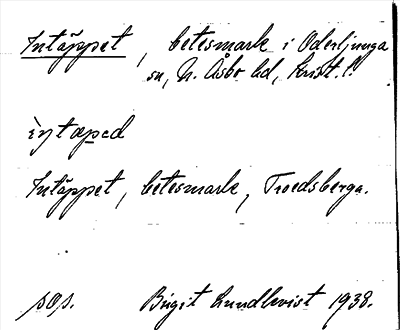 Intäppet, betesmark i Oderljunga
sn, N. Åsbo hd, Krist. l.
ìntæpəd
Intäppet, betesmark, Troedsberga.
pop. Birgit Lundkvist 1938.